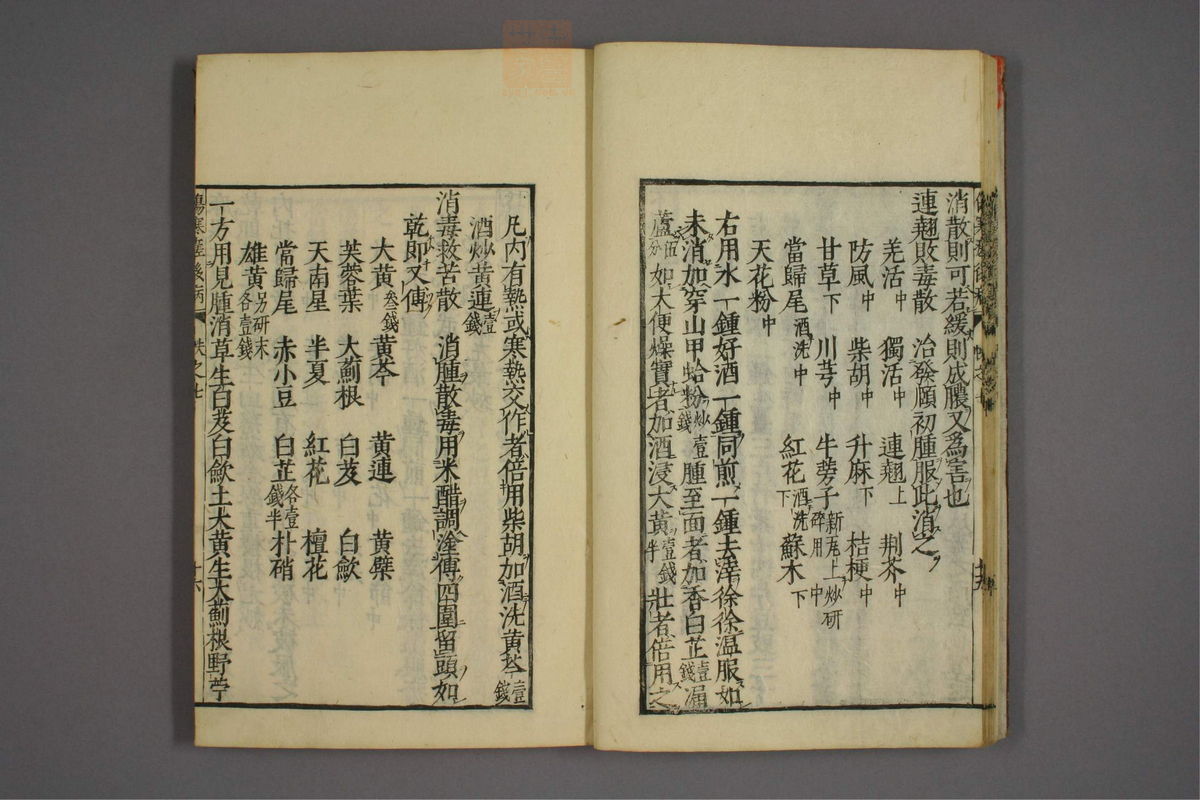 消散則可若緩則成膿又為害也
連翹敗毒散　治發頤初腫服此消之
羌活中　獨活中　連翹上　荆芥中
防風中　柴胡中　升麻下　桔梗中
甘草下　川芎中　牛蒡子新瓦上炒研碎用中
當歸尾酒洗中　紅花酒洗下　蘇木下
天花粉中
右用水一鍾好酒一鍾同煎一鍾去滓徐徐溫服如
未消加穿山甲蛤粉炒壹錢腫至面者加香白芷壹錢漏
蘆伍分如大便燥實者加酒浸大黃壹錢半壯者倍用之
凡内有熱或寒熱交作者倍用柴胡加酒洗黃芩壹錢
酒炒黃連壹錢
消毒救苦散　消腫散毒用米醋調塗傅四圍留頭如
乾即又傅
大黃叁錢　黃芩　黃連　黃檗
芙蓉葉　大薊根　白芨　白歛
天南星　半夏　紅花　檀花
當歸尾　赤小豆　白芷各壹錢半　朴硝
雄黃另研末各壹錢
一方用見腫消草生白芨白歛土大黃生大薊根野苧